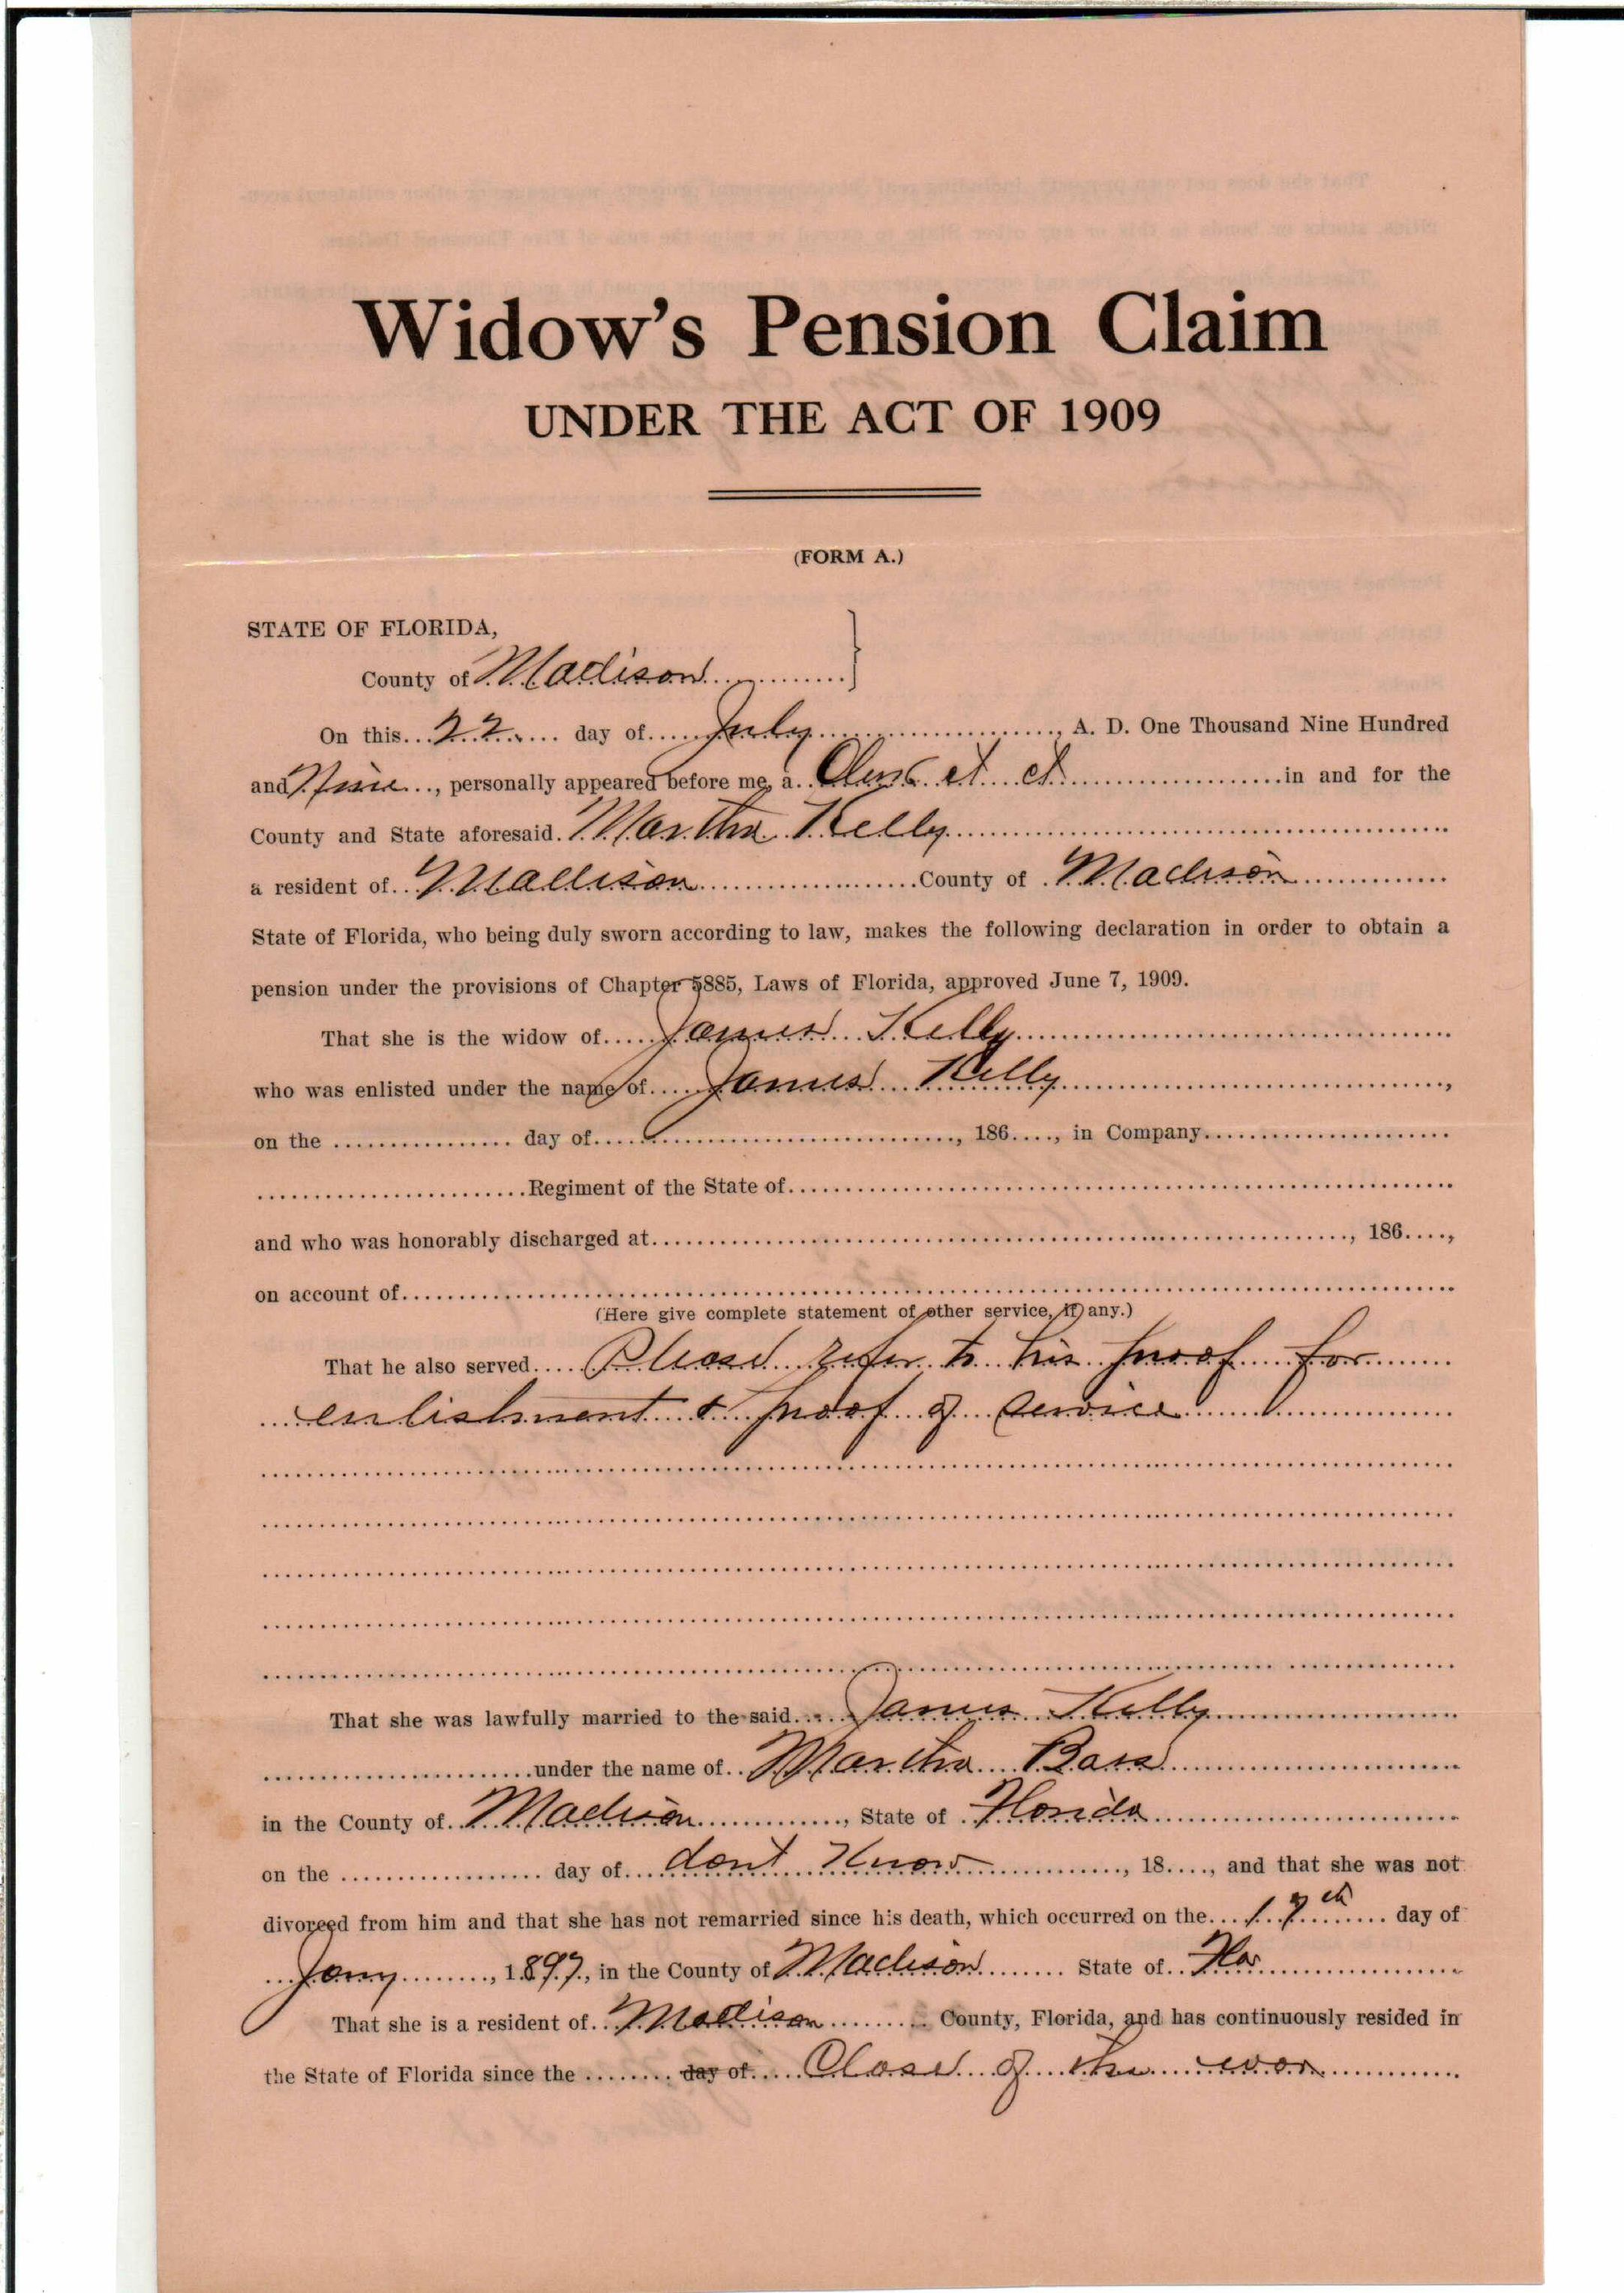 Widow's Pension Claim
UNDER THE ACT OF 1909
(FORM A.)
STATE OF FLORIDA,
County of Madison
On this 22 day of July, A. D. One Thousand Nine Hundred
and Nine, personally appeared before me, a Clerk ct ct in and for the
County and State aforesaid. Martha Kelly
a resident of Madison County of Madison
State of Florida, who being duly sworn according to law, makes the following declaration in order to obtain a
pension under the provisions of Chapter 5885, Laws of Florida, approved June 7, 1909.
That she is the widow of James Kelly
who was enlisted under the name of James Kelly,
on the day of, 186, in Company
Regiment of the State of
and who was honorably discharged at, 186,
on account of
(Here give complete statement of other service, if any.)
That he also served Please refer to his proof for
enlishment & proof of service
That she was lawfully married to the said James Kelly
under the name of Martha Bass
in the County of Madison, State of Florida
on the day of dont Know, 18, and that she was not
divorced from him and that she has not remarried since his death, which occurred on the 17th day of
Jany, 1897, in the County of Madison State of Fla
That she is a resident of Madison County, Florida, and has continuously resided in
the State of Florida since the day of Close of the war